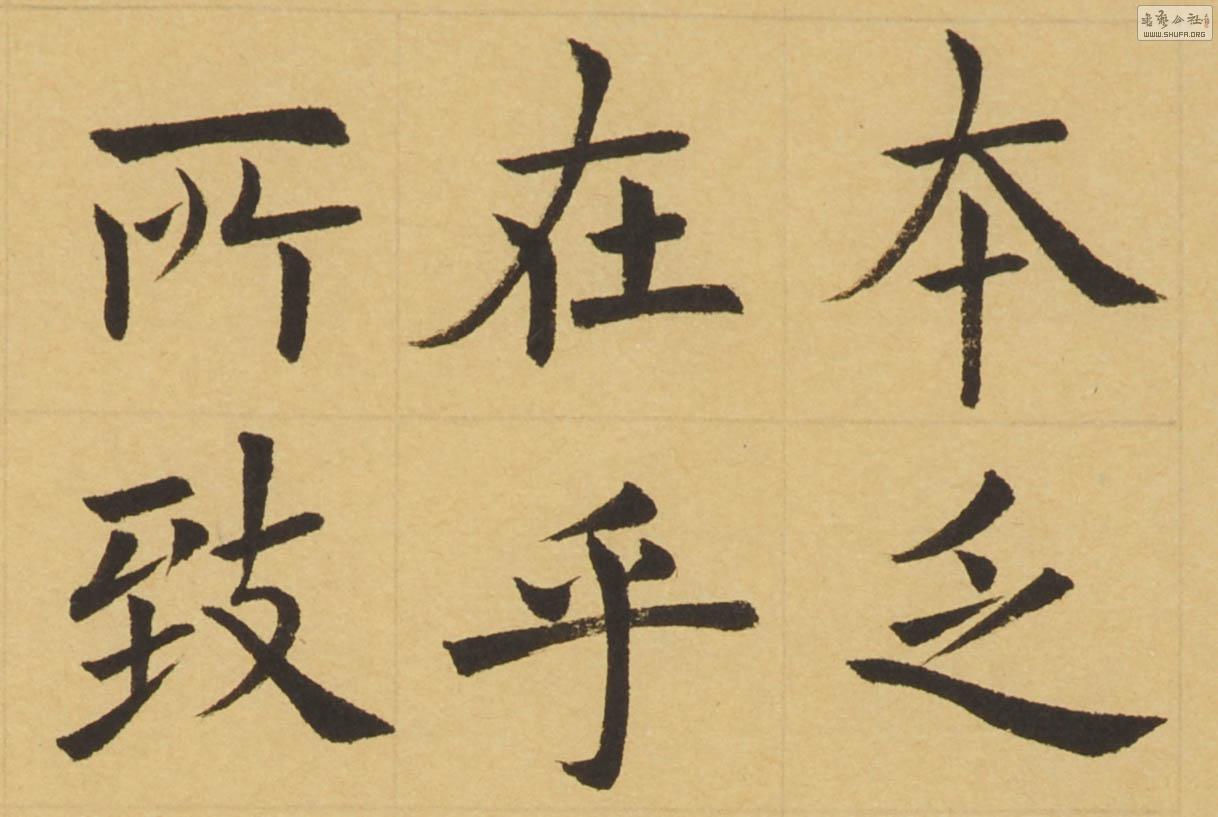 本乏
在乎
所致
書藝公社
WWW.SHUFA.ORG